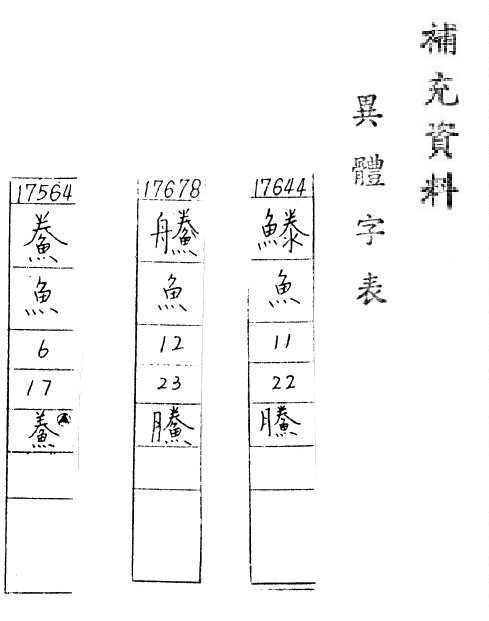 補充資料
異體字表
17644
魚
11
22
鰧
17678
魚
12
23
鰧
17564
鮝
魚
6
17